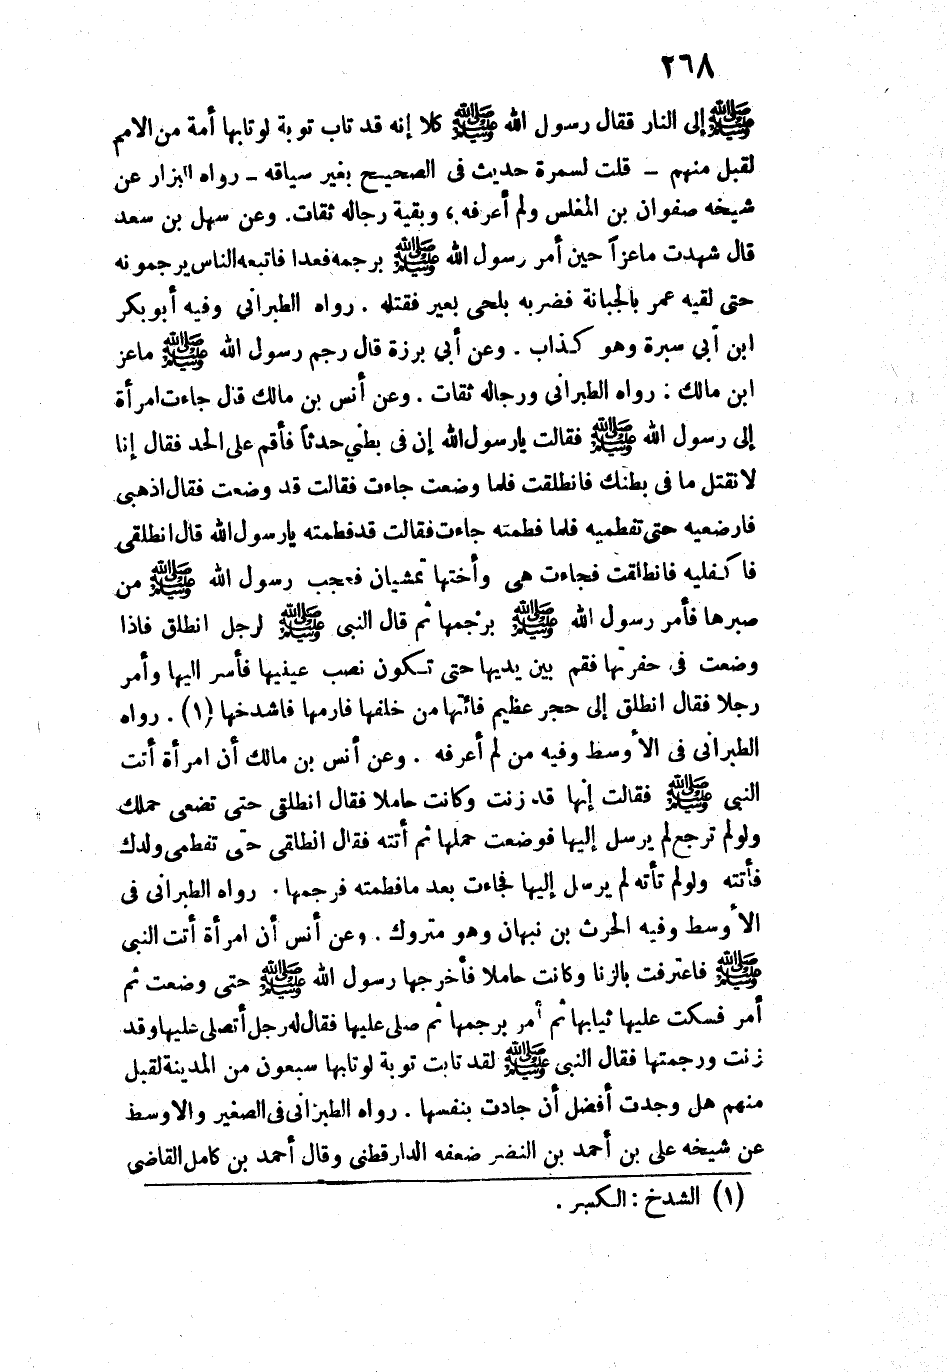 ٢٦٨
ﷺ إلى النار فقال رسول الله ﷺ كلا إنه قد تاب توبة لو تابها أمة من الامم
لقبل منهم – قلت لسمرة حديث فى الصحيح بغير سياقه – رواه البزار عن
شيخه صفوان بن المغلس ولم أعرفه ، وبقية رجاله ثقات. وعن سهل بن سعد
قال شهدت ماعزاً حين أمر رسول الله ﷺ برجمه فعدا فاتبعه الناس يرجمونه
حتى لقيه عمر بالجبانة فضربه بلحى بعير فقتله . رواه الطبراني وفيه أبو بكر
ابن أبي سبرة وهو كذاب . وعن أبي برزة قال رجم رسول الله ﷺ ماعز
ابن مالك : رواه الطبراني ورجاله ثقات . وعن أنس بن مالك قال جاءت امرأة
إلى رسول الله ﷺ فقالت يارسول الله إن فى بطني حدثاً فأقم على الحد فقال إنا
لا نقتل ما فى بطنك فانطلقت فلما وضعت جاءت فقالت قد وضعت فقال اذهبى
فارضعيه حتى تفطميه فلما فطمته جاءت فقالت قد فطمته يارسول الله قال انطلقى
فاكفليه فانطلقت فجاءت هى وأختها تمشيان فعجب رسول الله ﷺ من
صبرها فأمر رسول الله ﷺ برجمها ثم قال النبى ﷺ لرجل انطلق فاذا
وضعت فى حفرتها فقم بين يديها حتى تكون نصب عينيها فأسر اليها وأمر
رجلا فقال انطلق إلى حجر عظيم فائتها من خلفها فارمها فاشدخها (١) . رواه
الطبرانى فى الأوسط وفيه من لم أعرفه . وعن أنس بن مالك أن امرأة أتت
النبى ﷺ فقالت إنها قد زنت وكانت حاملا فقال انطلقى حتى تضعى حملك
ولو لم ترجع لم يرسل إليها فوضعت حملها ثم أتته فقال انطلقى حتى تفطمى ولدك
فأتته ولو لم تأته لم يرسل إليها فجاءت بعد ما فطمته فرجمها . رواه الطبرانى فى
الأوسط وفيه الحرث بن نبهان وهو متروك . وعن أنس أن امرأة أتت النبى
ﷺ فاعترفت بالزنا وكانت حاملا فأخرجها رسول الله ﷺ حتى وضعت ثم
أمر فسكت عليها ثيابها ثم أمر برجمها ثم صلى عليها فقال له رجل أتصلى عليها وقد
زنت ورجمتها فقال النبى ﷺ لقد تابت توبة لو تابها سبعون من المدينة لقبل
منهم هل وجدت أفضل أن جادت بنفسها . رواه الطبرانى فى الصغير والاوسط
عن شيخه على بن أحمد بن النضر ضعفه الدارقطنى وقال أحمد بن كامل القاضى
(١) الشدخ : الكسر .